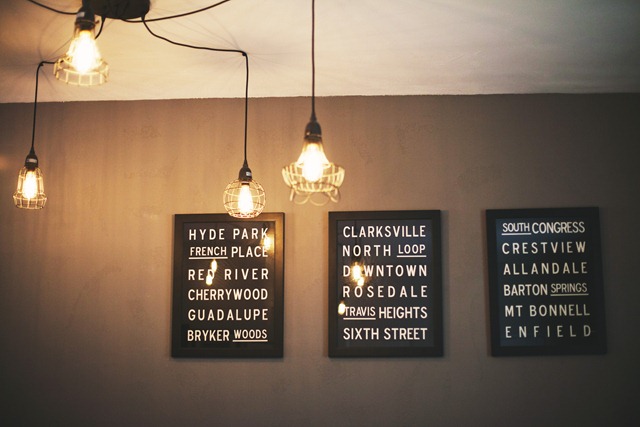 HYDE PARK
FRENCH PLACE
RED RIVER
CHERRYWOOD
GUADALUPE
BRYKER WOODS
CLARKSVILLE
NORTH LOOP
DOWNTOWN
ROSEDALE
TRAVIS HEIGHTS
SIXTH STREET
SOUTH CONGRESS
CRESTVIEW
ALLANDALE
BARTON SPRINGS
MT BONNELL
ENFIELD